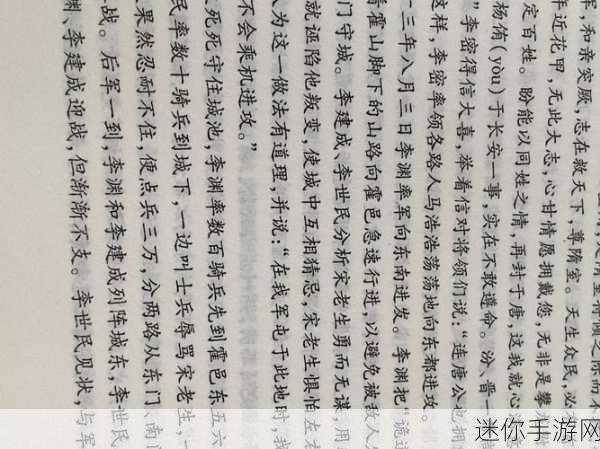 军，和亲突厥，志在救天下，尊隋室。天生众民，必
年近花甲，无此大志，心甘情愿拥戴您，无非是攀
定百姓。盼能以同姓之情，再封于唐，这我就心
杨侑(yòu)于长安一事，实在不敢遵命。汾、晋一
”李密得信大喜，举着信对将领们说：“连唐公也拥
这样，李密率领各路人马浩浩荡荡地向东都进攻。
三年八月三日李渊率军向东南进发。李渊把“诡道
着霍山脚下的山路向霍邑急速行进，以避免被敌人
门守城。李建成、李世民分析宋老生勇而无谋，用
就诬陷他叛变，使城中互相猜忌，宋老生惧怕左右
人为这一做法有道理，并说：“在我军屯于此地时，我
不会乘机进攻。”
死死守住城池，李渊率数百骑兵先到霍邑东五六
民率数十骑兵到城下，一边叫士兵辱骂宋老生，一
果然忍耐不住，便点兵三万，分两路从东门、南门
战。后军一到，李渊和李建成列阵城东，李世民
渊、李建成迎战，但渐渐不支。李世民见状，与军
迷你手游网